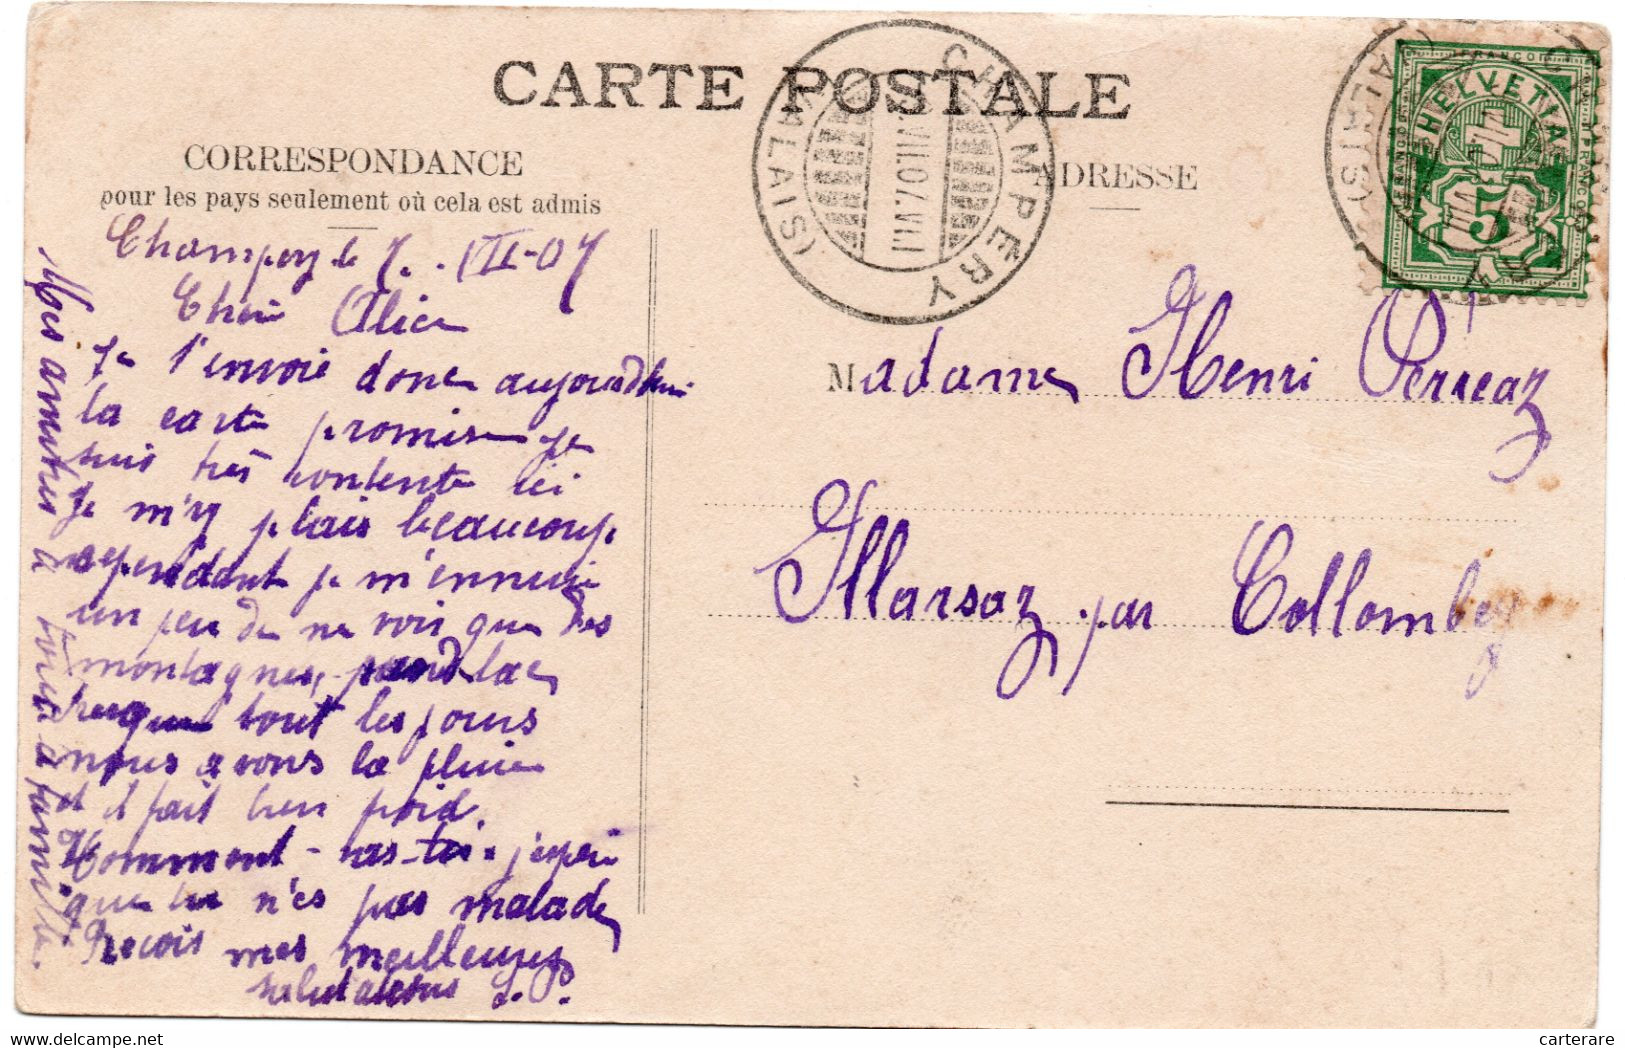 CARTE POSTALE
CORRESPONDANCE
pour les pays seulement où cela est admis
ADRESSE
CHAMPÉRY
(VALAIS)
VII.07.VI.
HELVETIA
5
(VALAIS)
Champery le 7. VII-07
Cher Alice
Je t'envoie donc aujourd'hui
la carte promise je
suis très contente ici
Je m'y plais beaucoup
cependant je m'ennuie
un peu de ne voir que des
montagnes, pas de lac
presque tout les jours
nous avons la pluie
et il fait bien froid.
Comment vas-toi. j'espère
que tu n'es pas malade
Reçois mes meilleures
salutations L. P.
Mes amitiés à toute ta famille.
Madame Henri Perreaz
Illarsaz par Collombey
www.cartorum.fr
carterare